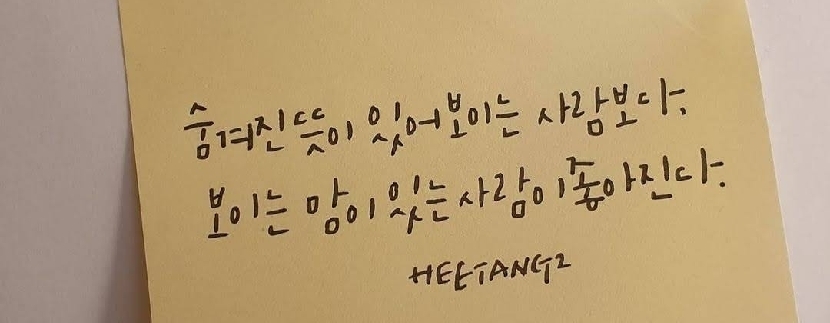 숨겨진뜻이 있어보이는 사람보다,
보이는 맘이 있는사람이좋아진다.
HEETANG2